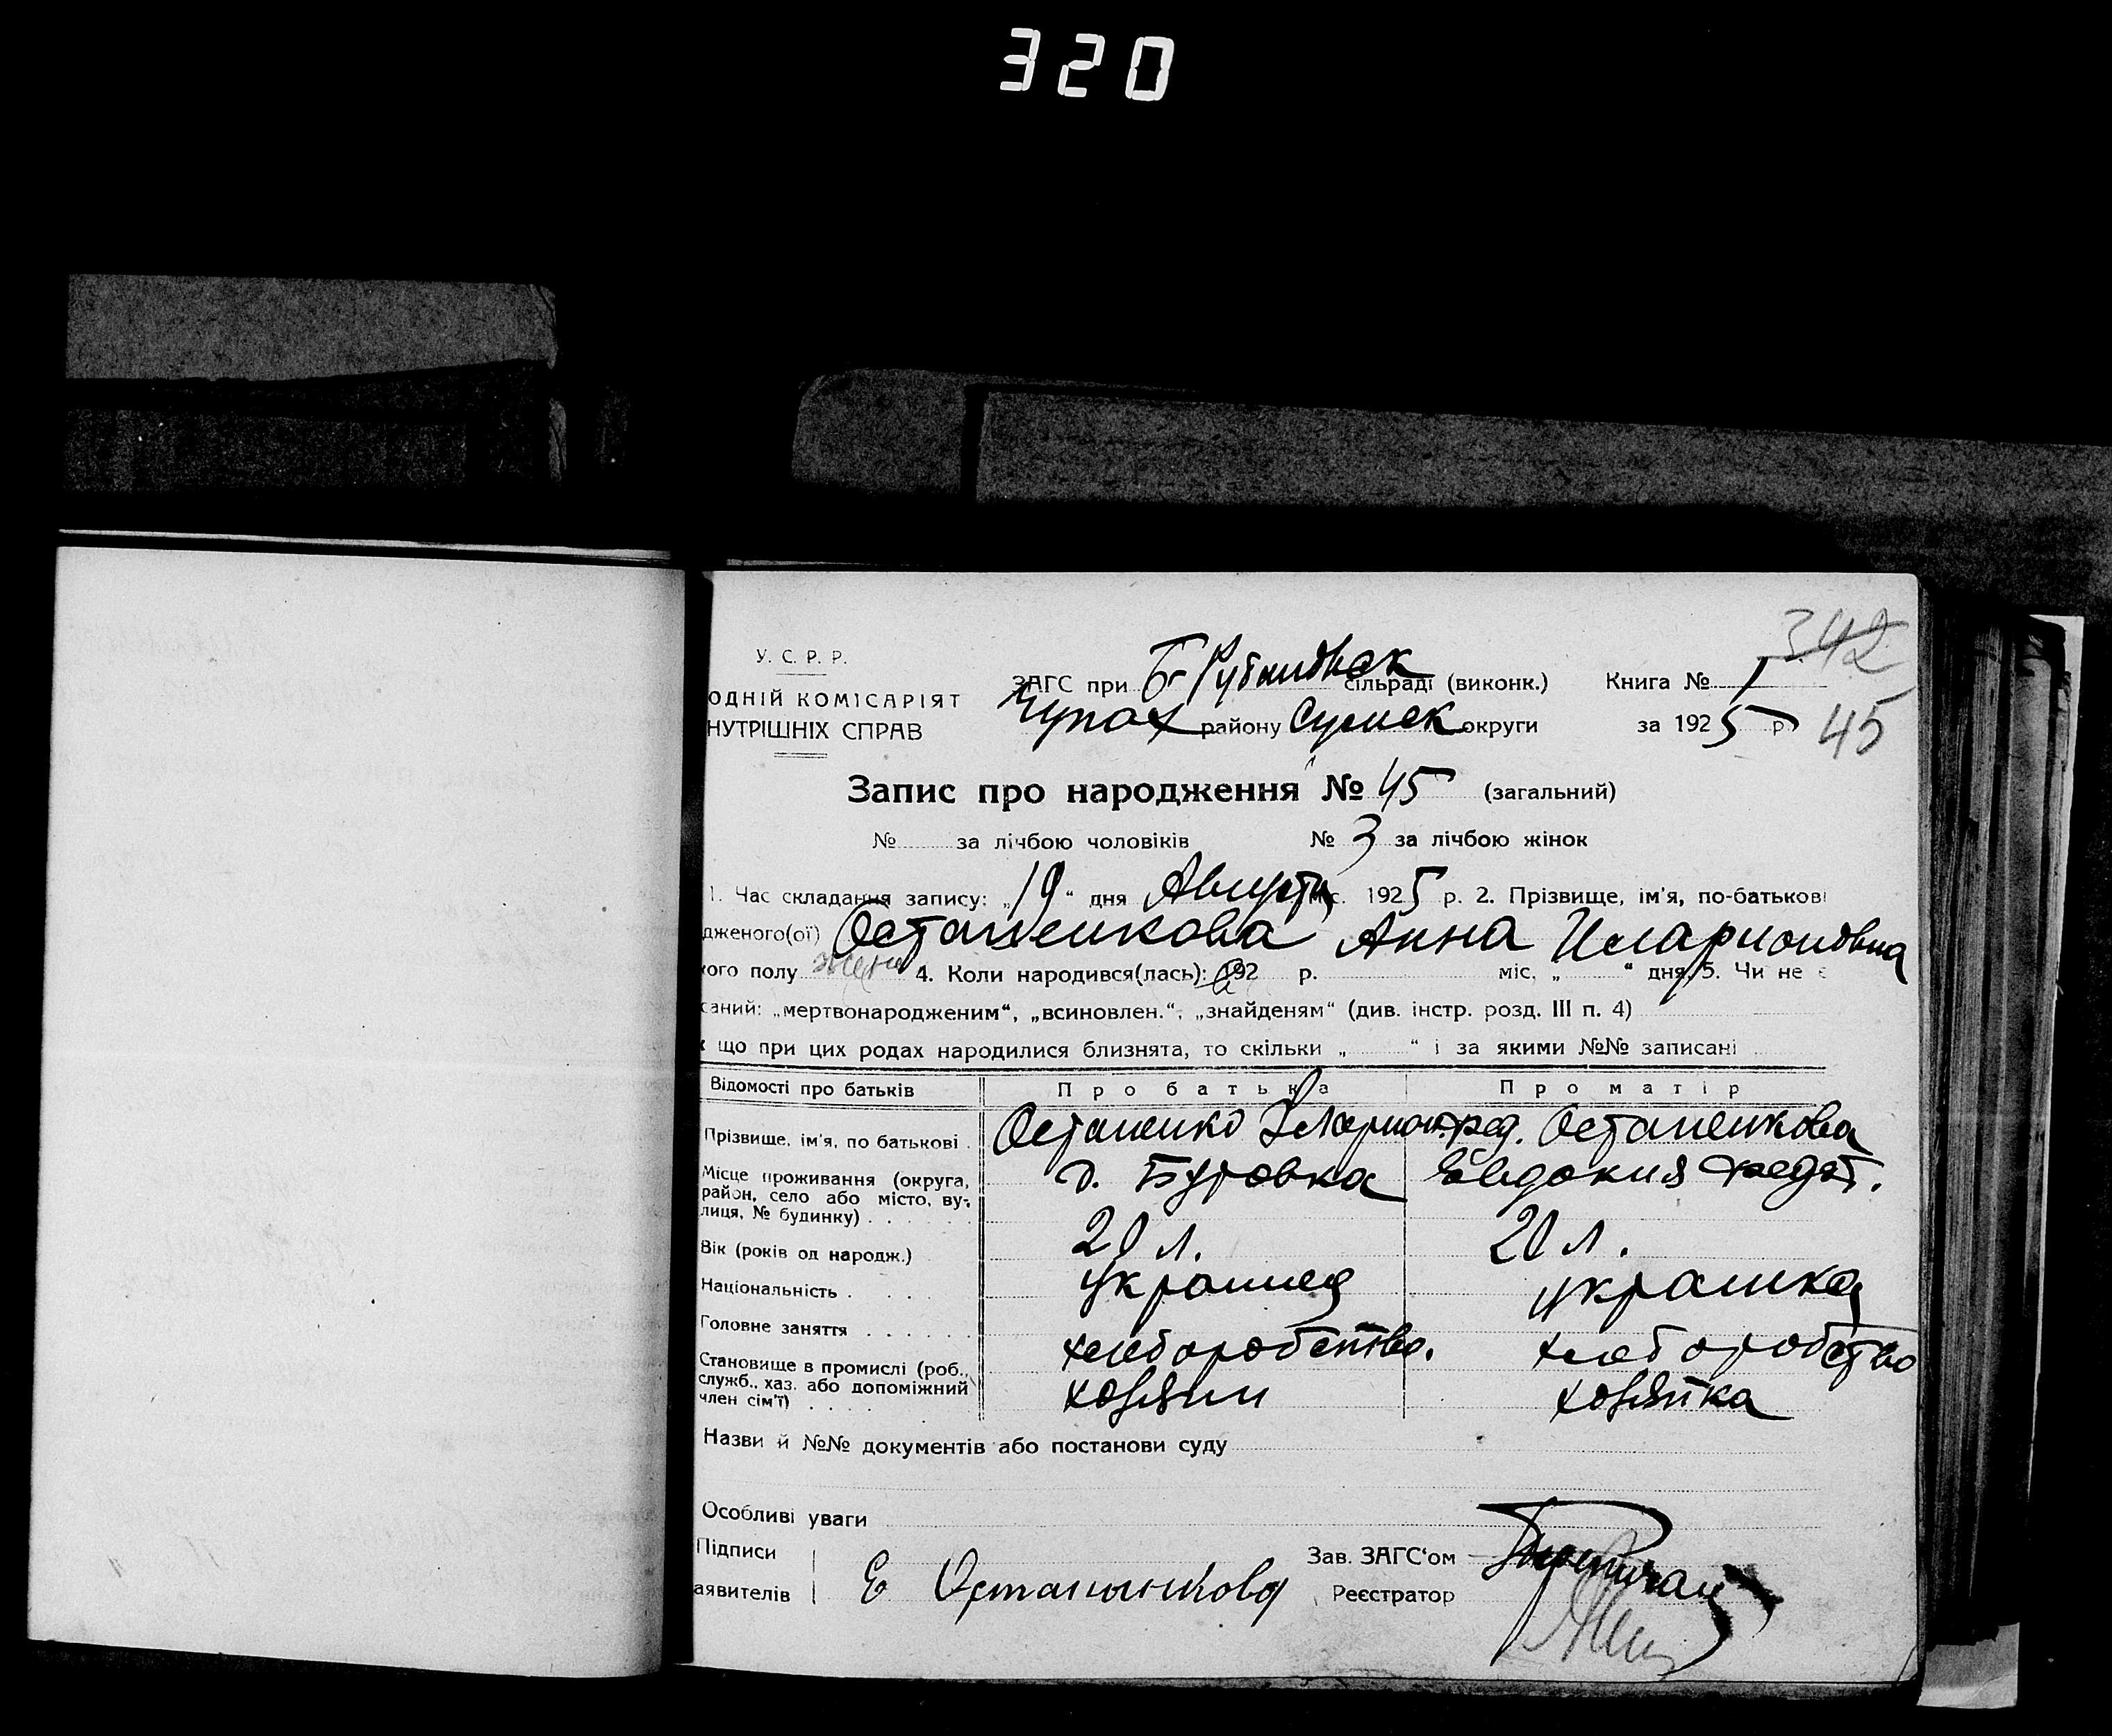 320
342
У. С. Р. Р.
ОДНІЙ КОМІСАРІЯТ
НУТРІШНІХ СПРАВ
ЗАГС при Б- сільраді (виконк.) Книга № 1
Чупах району Сумск округи за 1925 р. 45
Запис про народження № 45 (загальний)
№ за лічбою чоловіків № 3 за лічбою жінок
1. Час складання запису: „19“ дня Августа міс. 1925 р. 2. Прізвище, ім'я, по-батькові
дженого(ої) Остапенкова Анна Иларионовна
ого полу жен 4. Коли народився(лась): 192 р. міс. „ “ дня. 5. Чи не є
саний: „мертвонародженим“, „всиновлен.“, „знайденям“ (див. інстр. розд. III п. 4)
що при цих родах народилися близнята, то скільки „ “ і за якими №№ записані
Відомості про батьків Про батька Про матір
Прізвище, ім'я, по батькові Остапенко Остапенкова
Місце проживання (округа, район, село або місто, вулиця, № будинку) д. Буровка Евдокия Федот.
Вік (років од народж.) 20 л. 20 л.
Національність украинец украинка
Головне заняття хлеборобство. хлеборобство
Становище в промислі (роб., служб., хаз. або допоміжний член сім'ї) хозяин хозяйка
Назви й №№ документів або постанови суду
Особливі уваги
Підписи Зав. ЗАГС'ом
аявителів Е Реєстратор